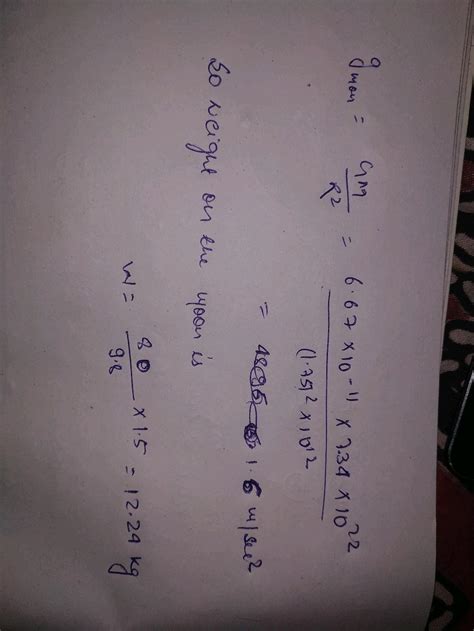 g moon = GM / R² = 6.67 × 10 - 11 × 7.34 × 10²² / (1.75)² × 10¹²
= 1.6 m/sec²
So weight on the moon is
W = 80 / 9.8 × 1.5 = 12.24 kg